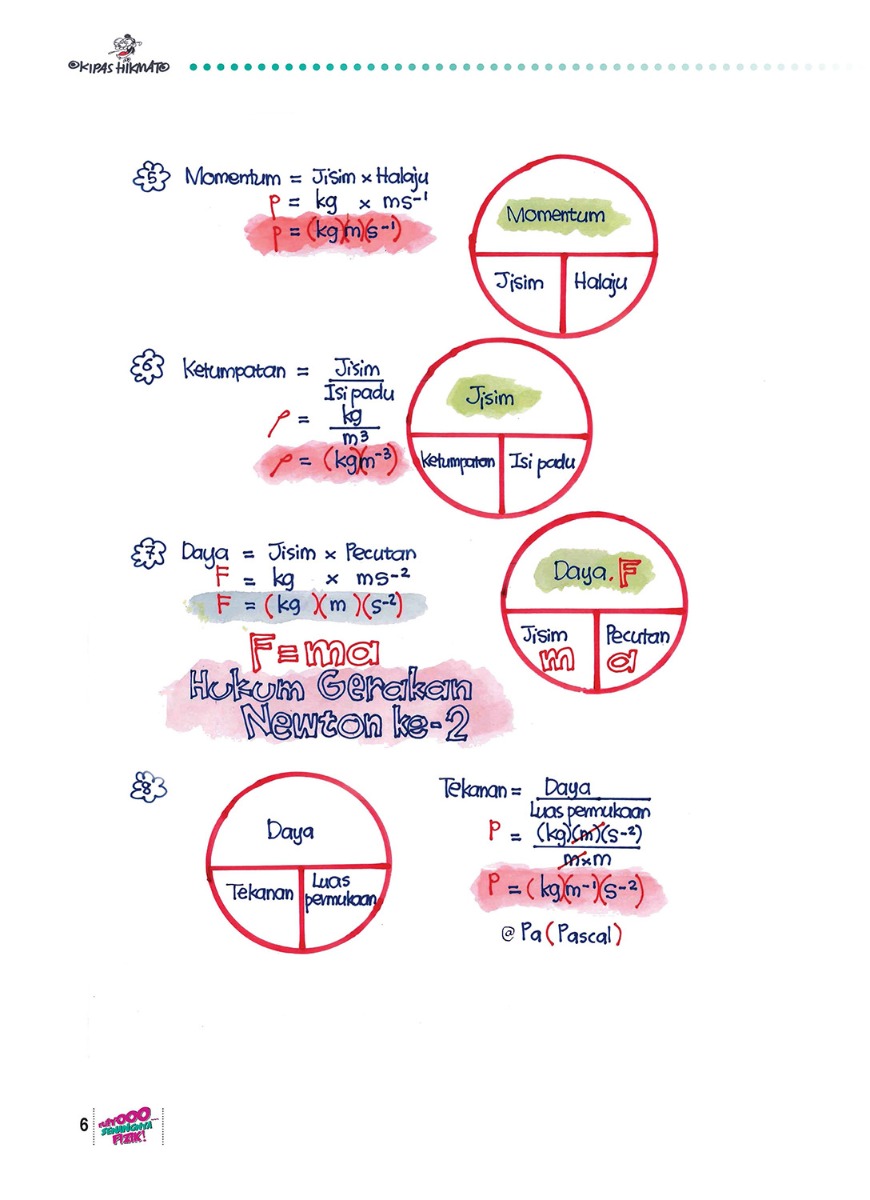 ©KIPAS HIKMAT©
5 Momentum = Jisim × Halaju
p = kg × ms⁻¹
p = (kg)(m)(s⁻¹)
Momentum
Jisim Halaju
6 Ketumpatan = Jisim
Isi padu
ρ = kg
m³
ρ = (kg)(m⁻³)
Jisim
Ketumpatan Isi padu
7 Daya = Jisim × Pecutan
F = kg × ms⁻²
F = (kg)(m)(s⁻²)
F=ma
Hukum Gerakan
Newton ke-2
Daya, F
Jisim Pecutan
m a
8
Daya
Tekanan Luas
permukaan
Tekanan = Daya
Luas permukaan
P = (kg)(m)(s⁻²)
m×m
P = (kg)(m⁻¹)(s⁻²)
@ Pa (Pascal)
6
SENANGNYA
FIZIK!